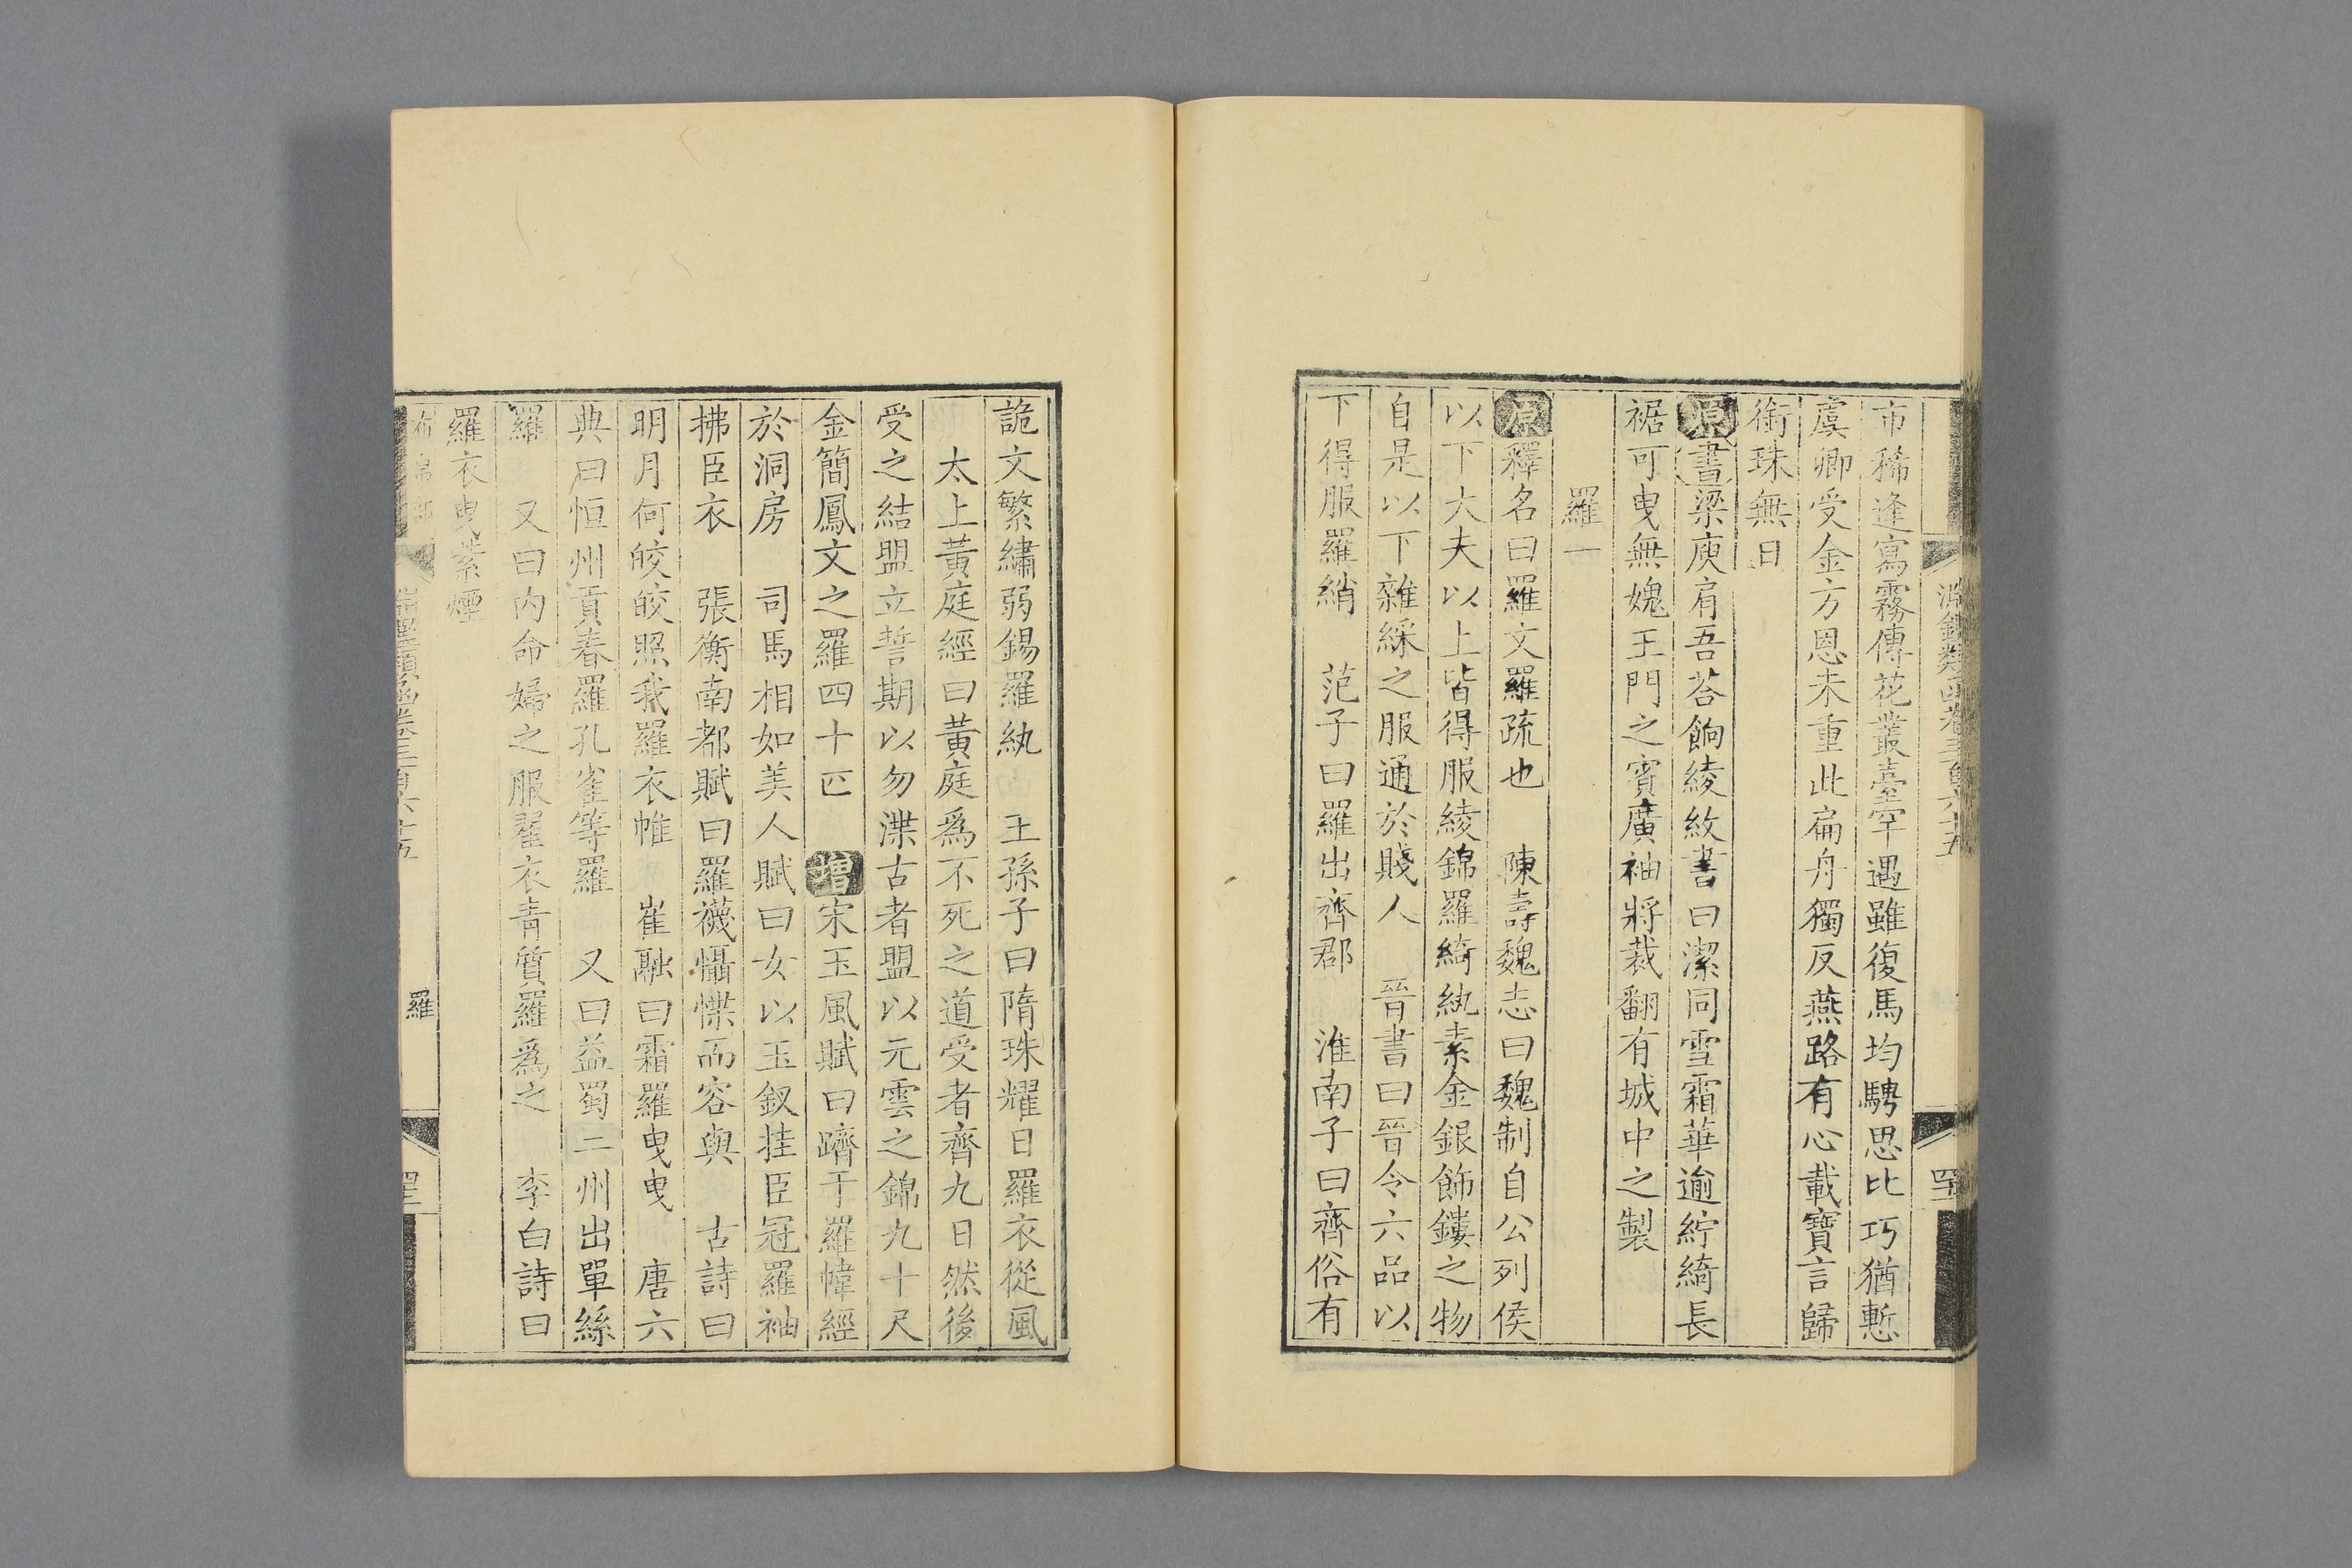 淵鑑類函卷三百六十五
市稀逢寫霧傳花叢臺罕遇雖復馬均騁思比巧猶慙
虞卿受金方恩未重此扁舟獨反燕路有心載寶言歸
銜珠無日
原書梁庾肩吾荅餉綾紋書曰潔同雪霜華逾紵綺長
裾可曳無媿王門之賓廣袖將裁翻有城中之製
羅一
原釋名曰羅文羅疏也 陳壽魏志曰魏制自公列侯
以下大夫以上皆得服綾錦羅綺紈素金銀飾鏤之物
自是以下雜綵之服通於賤人 晉書曰晉令六品以
下得服羅綃 范子曰羅出齊郡 淮南子曰齊俗有
詭文繁繡弱錫羅紈 王孫子曰隋珠耀日羅衣從風
太上黃庭經曰黃庭爲不死之道受者齊九日然後
受之結盟立誓期以勿渫古者盟以元雲之錦九十尺
金簡鳳文之羅四十匹 增宋玉風賦曰躋于羅幃經
於洞房 司馬相如美人賦曰女以玉釵挂臣冠羅袖
拂臣衣 張衡南都賦曰羅襪懾慄而容與 古詩曰
明月何皎皎照我羅衣帷 崔融曰霜羅曳曳 唐六
典曰恒州貢春羅孔雀等羅 又曰益蜀二州出單絲
羅 又曰內命婦之服翟衣青質羅爲之 李白詩曰
羅衣曳紫煙
羅